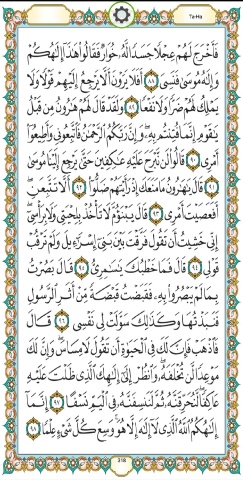 Ta-Ha
فَأَخْرَجَ لَهُمْ عِجْلًا جَسَدًا لَّهُ خُوَارٌ فَقَالُوا هَٰذَا إِلَٰهُكُمْ
وَإِلَٰهُ مُوسَىٰ فَنَسِيَ ٨٨ أَفَلَا يَرَوْنَ أَلَّا يَرْجِعُ إِلَيْهِمْ قَوْلًا وَلَا
يَمْلِكُ لَهُمْ ضَرًّا وَلَا نَفْعًا ٨٩ وَلَقَدْ قَالَ لَهُمْ هَٰرُونُ مِن قَبْلُ
يَٰقَوْمِ إِنَّمَا فُتِنتُم بِهِ وَإِنَّ رَبَّكُمُ الرَّحْمَٰنُ فَاتَّبِعُونِي وَأَطِيعُوا
أَمْرِي ٩٠ قَالُوا لَن نَّبْرَحَ عَلَيْهِ عَٰكِفِينَ حَتَّىٰ يَرْجِعَ إِلَيْنَا مُوسَىٰ
٩١ قَالَ يَٰهَٰرُونُ مَا مَنَعَكَ إِذْ رَأَيْتَهُمْ ضَلُّوا ٩٢ أَلَّا تَتَّبِعَنِ
أَفَعَصَيْتَ أَمْرِي ٩٣ قَالَ يَبْنَؤُمَّ لَا تَأْخُذْ بِلِحْيَتِي وَلَا بِرَأْسِي
إِنِّي خَشِيتُ أَن تَقُولَ فَرَّقْتَ بَيْنَ بَنِي إِسْرَٰٓءِيلَ وَلَمْ تَرْقُبْ
قَوْلِي ٩٤ قَالَ فَمَا خَطْبُكَ يَٰسَٰمِرِيُّ ٩٥ قَالَ بَصُرْتُ
بِمَا لَمْ يَبْصُرُوا بِهِ فَقَبَضْتُ قَبْضَةً مِّنْ أَثَرِ الرَّسُولِ
فَنَبَذْتُهَا وَكَذَٰلِكَ سَوَّلَتْ لِي نَفْسِي ٩٦ قَالَ
فَاذْهَبْ فَإِنَّ لَكَ فِي الْحَيَوٰةِ أَن تَقُولَ لَا مِسَاسَ وَإِنَّ لَكَ
مَوْعِدًا لَّن تُخْلَفَهُ وَانظُرْ إِلَىٰ إِلَٰهِكَ الَّذِي ظَلْتَ عَلَيْهِ
عَاكِفًا لَّنُحَرِّقَنَّهُ ثُمَّ لَنَنسِفَنَّهُ فِي الْيَمِّ نَسْفًا ٩٧ إِنَّمَا
إِلَٰهُكُمُ اللَّهُ الَّذِي لَا إِلَٰهَ إِلَّا هُوَ وَسِعَ كُلَّ شَيْءٍ عِلْمًا ٩٨
318